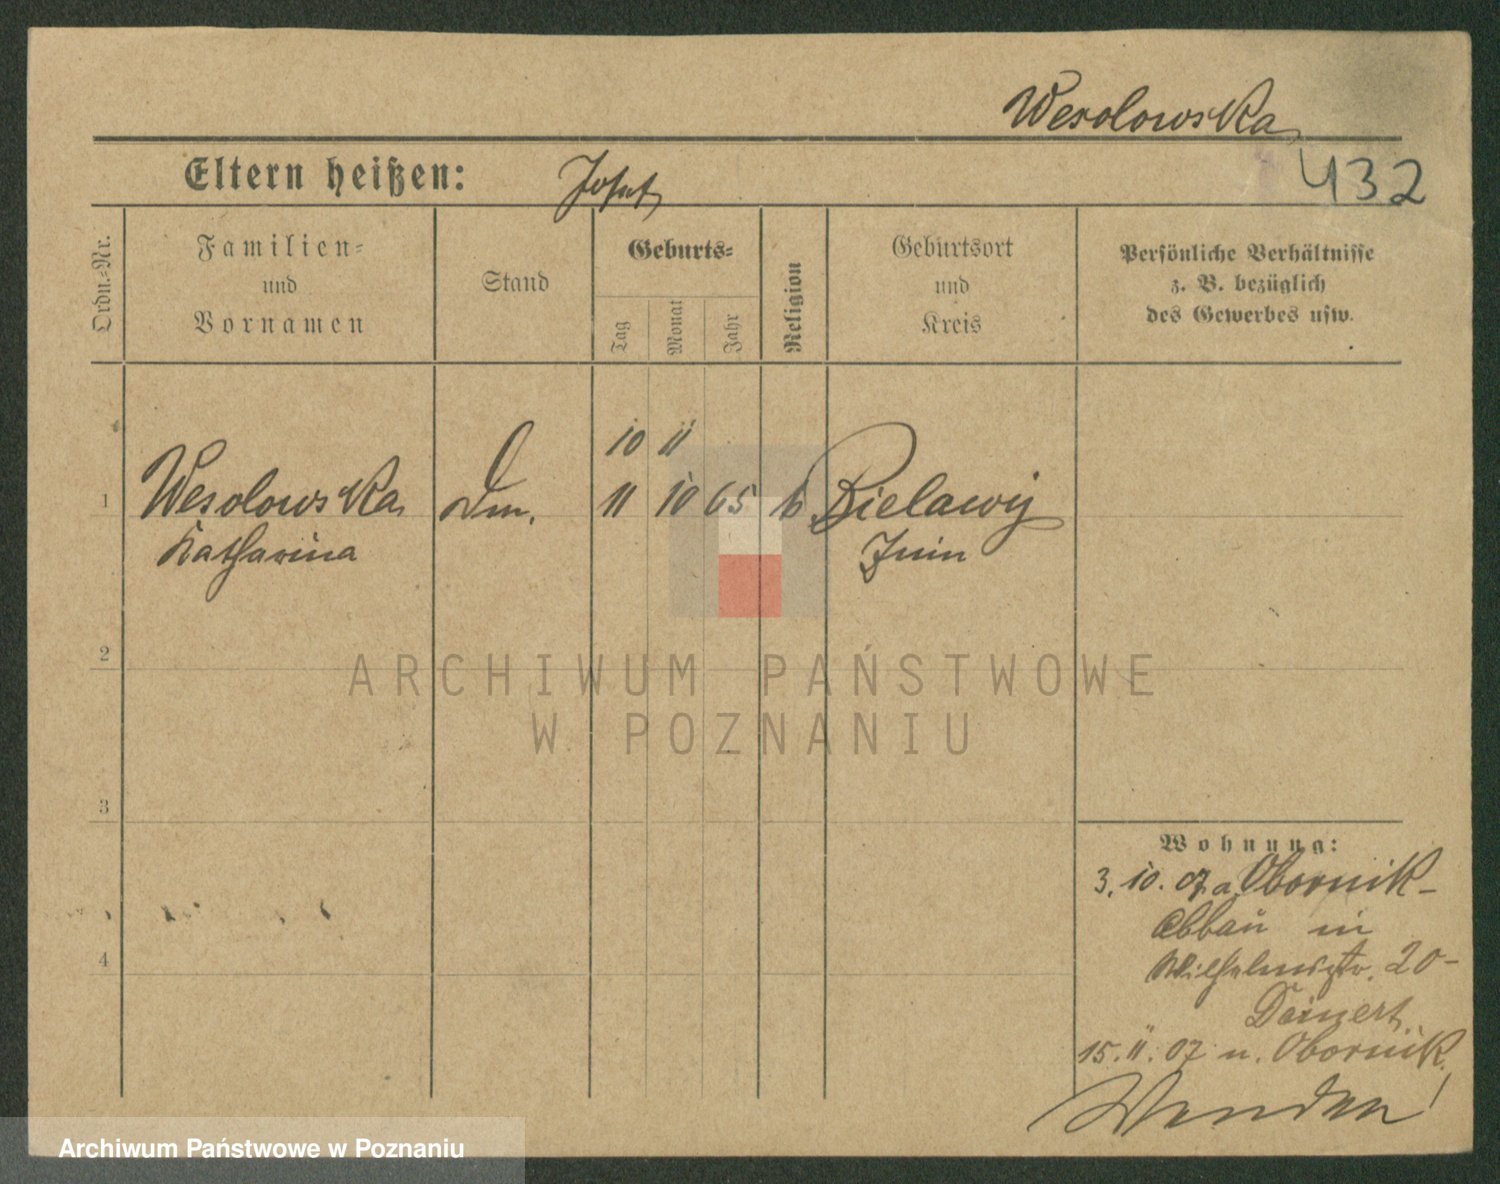 Wesolowska
432
Eltern heißen: Josef
Ordn.-Nr.
Familien-
und
Vornamen
Stand
Geburts-
Tag
Monat
Jahr
Religion
Geburtsort
und
Kreis
Persönliche Verhältnisse
z. B. bezüglich
des Gewerbes usw.
10 11
1 Wesolowska Dm. 11 10 65 k Bielawy
Katharina Znin
2
3
4
Wohnung:
3. 10. 07 a. Obornik-
Abbau in
Wilhelmstr. 20-
Deinert
15. 11. 07 n. Obornik.
Wenden!
ARCHIWUM PAŃSTWOWE
W POZNANIU
Archiwum Państwowe w Poznaniu